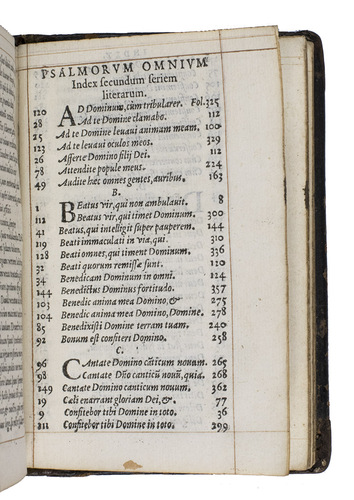 PSALMORVM OMNIVM
Index secundum seriem
literarum.
120 AD Dominum, cùm tribularer. Fol. 325
28 Ad te Domine clamabo. 112
25 Ad te Domine leuaui animum meam. 100
123 Ad te leuaui oculos meos. 329
26 Afferte Domino filij Dei. 112
78 Attendite popule meus. 224
49 Audite hæc omnes gentes, auribus. 163
B.
1 BEatus vir, qui non ambulauit. 8
112 Beatus vir, qui timet Dominum. 300
41 Beatus, qui intelligit super pauperem. 144
119 Beati immaculati in via, qui 310
128 Beati omnes, qui timent Dominum. 336
32 Beati quorum remissæ sunt. 120
34 Benedicam Dominum in omni. 124
144 Benedictus Dominus fortitudo. 357
103 Benedic anima mea Domino, & 275
104 Benedic anima mea Domino, Domine. 278
85 Benedixisti Domine terram tuam. 240
92 Bonum est confiteri Domino. 258
C.
96 CAntate Domino cāticum nouum. 265
98 Cantate Dño canticū nouū, quia. 268
149 Cantate Domino canticum nouum. 362
19 Cæli enarrant gloriam Dei, &. 77
9 Confitebor tibi Domine in toto. 36
111 Confitebor tibi Domine in toto. 299